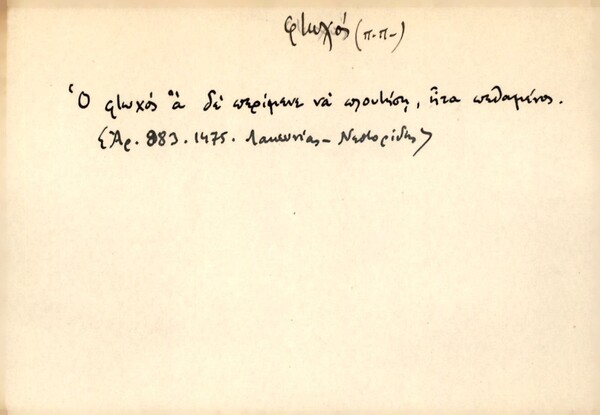 φτωχός (π.π-)
Ὁ φτωχός ἂ δὲ περίμενε νὰ πλουτίση, ἦτα πεθαμένος.
(Ἀρ. 883. 1475. Λακωνίας - Νεστορίδης)